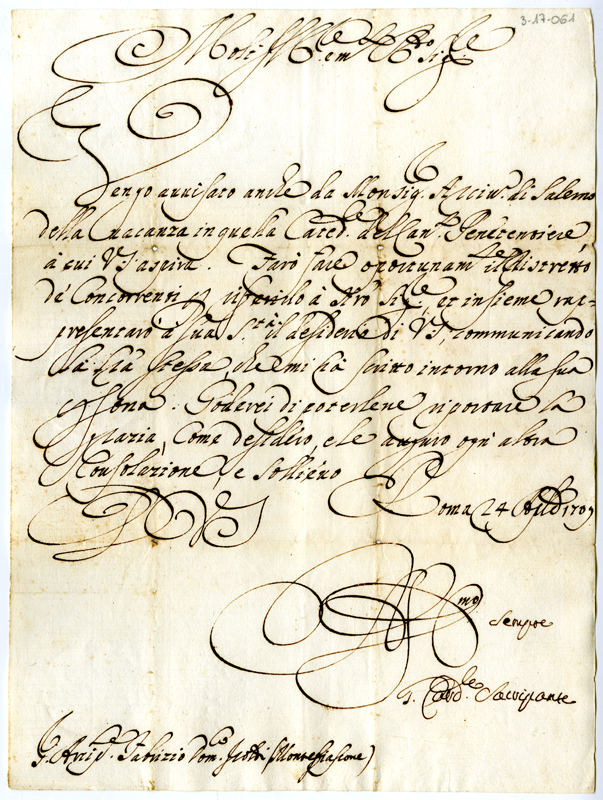 3-17-061
Molt' Ill.re e m.to R.do Sig.re
Vengo avvisato anche da Monsig.r Arciv.o di Salerno
della vacanza in quella Cated.le del Can.to Penetenziere
à cui VS aspira. Farò fare oportunam.te il Ristretto
de' Concorrenti p riferirlo à N'rò Sig.re, et insieme rap-
presentarò à Sua S.tà il desiderio di VS, communicando
la stessa, che mi hà scritto intorno alla sua
p'sona. Goderei di poterlene riportare la
grazia, come desidero, e le auguro ogn' altra
Consolazione, e sollievo Roma 24 Aple 1709
D VS
Aff.mo sempre
G. Card.le Sacripante
S. Arcip.e Fabrizio Dom.co (Montefiascone)